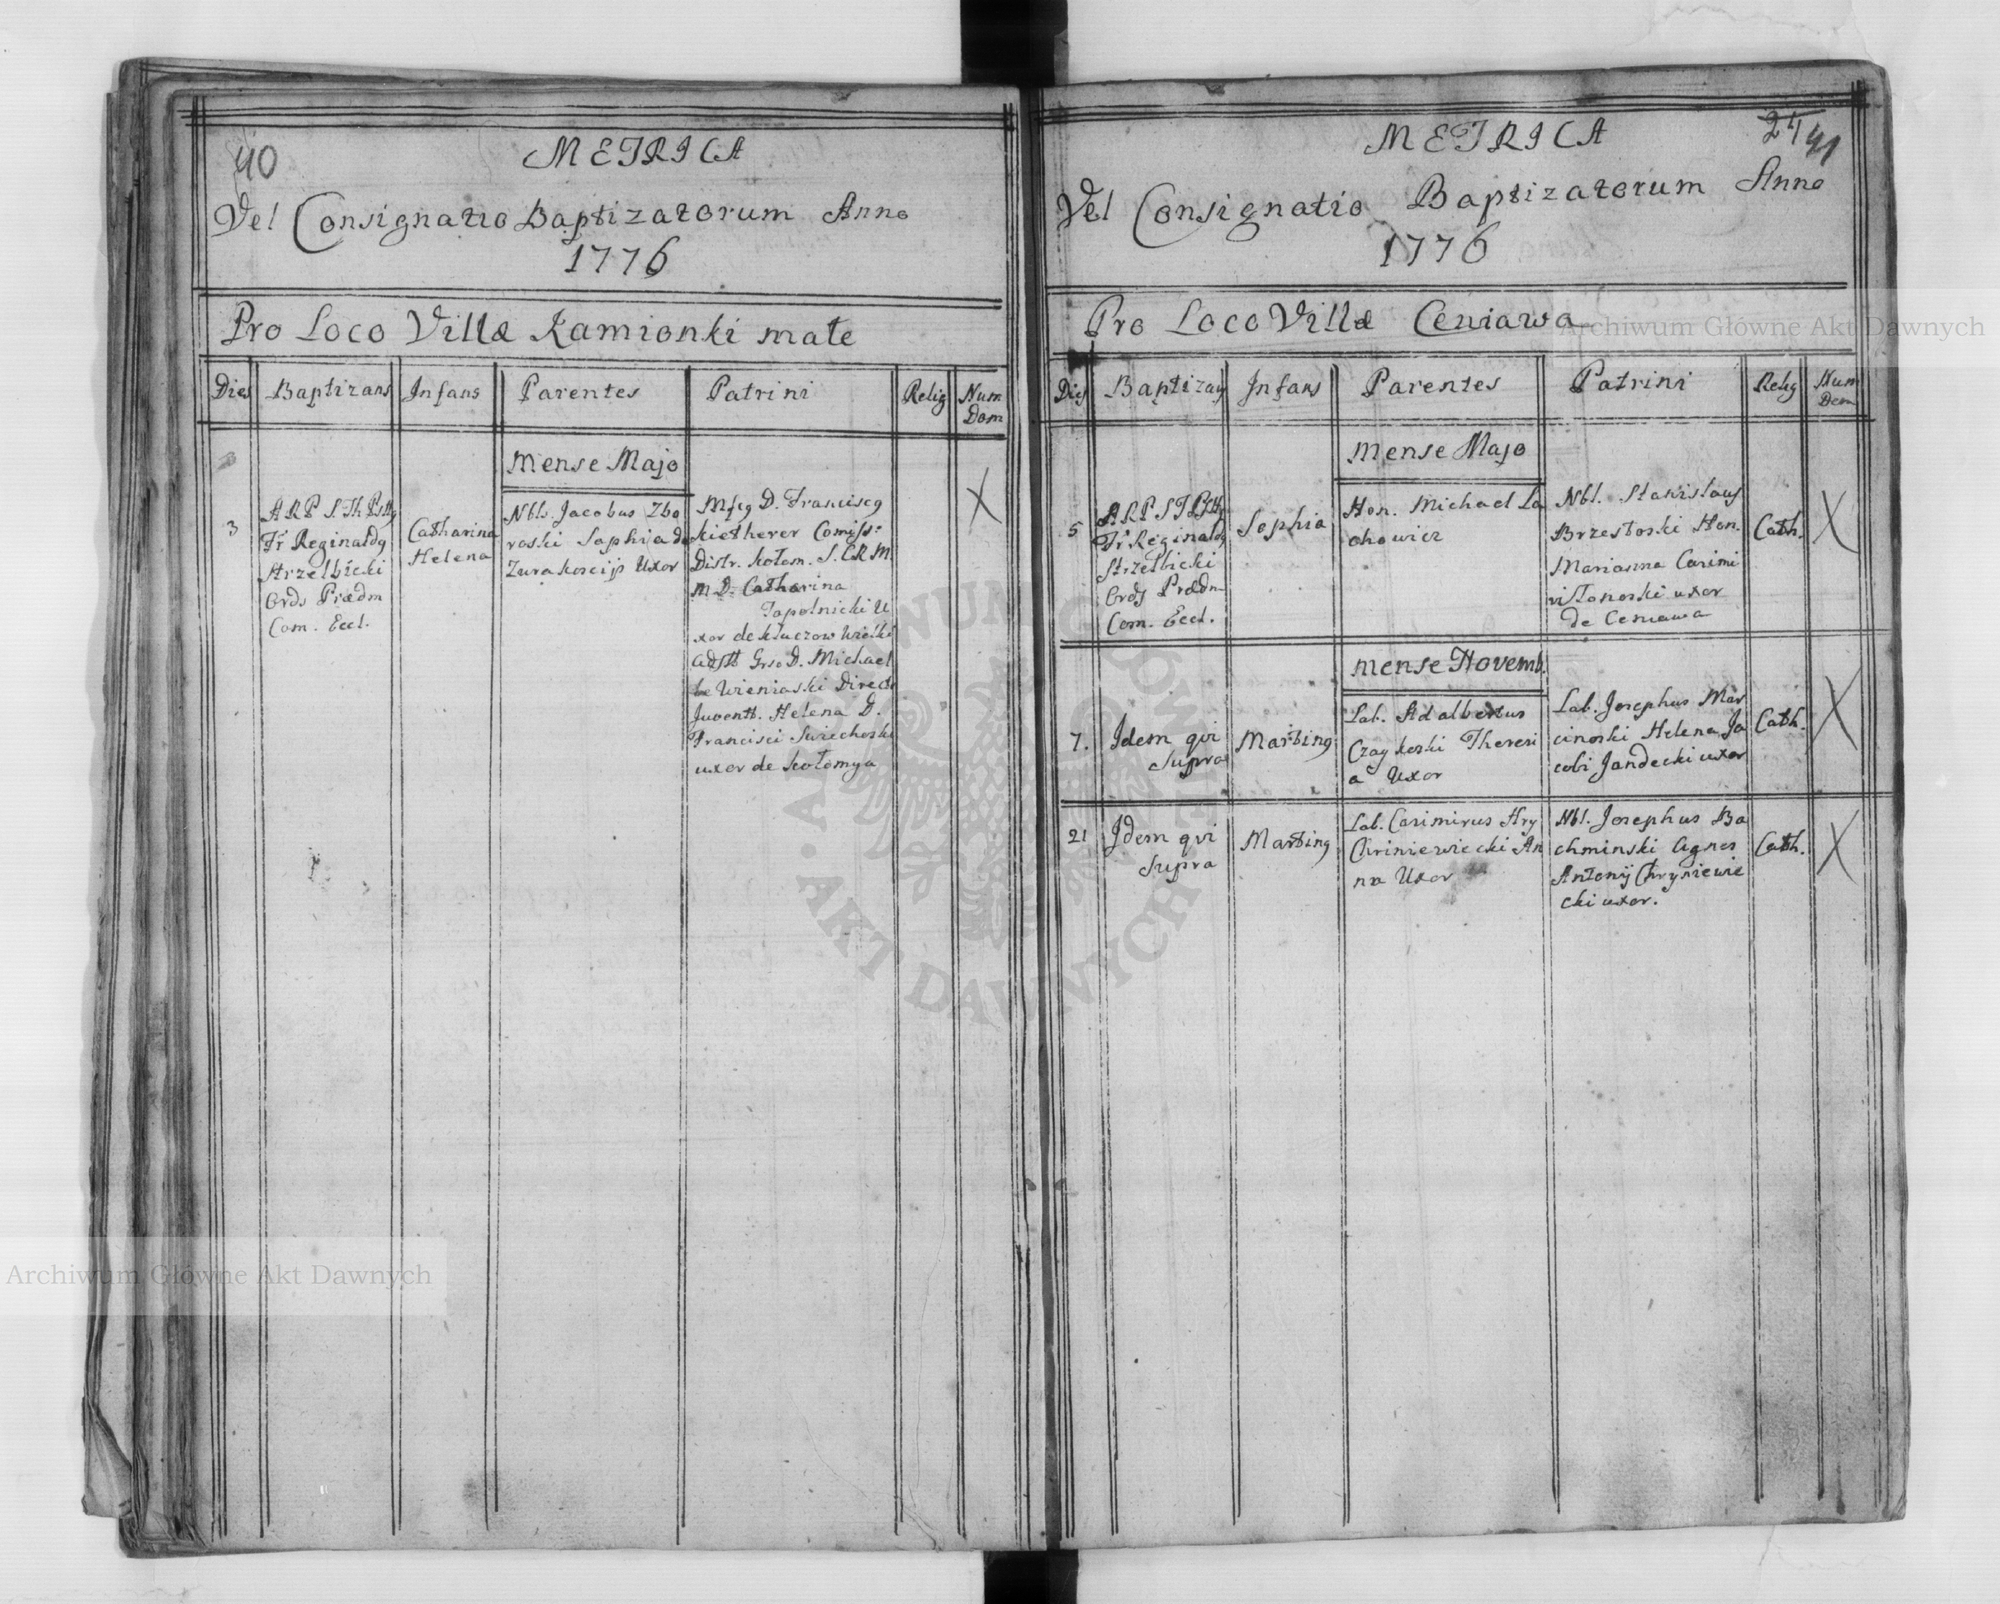 40
METRICA
Vel Consignatio Baptizatorum Anno
1776
Pro Loco Villæ Kamionki małe
Dies Baptizans Infans Parentes Patrini Relig Num Dom
Mense Majo
3
ARP S Th
Fr Reginaldg
Strzelbicki
Ords Prædm
Com. Eccl.
Catharina
Helena
Nbls Jacobus Zbo
roski Sophia d
Zurakoscijs Uxor
Mfcg D. Franciscg
kietherer Comiss:
Distr. kołom. S. C R M.
M. D. Catharina
Topolnicki U
xor de kłuczow Wielki
Adstt Grso D. Michael
be Wieniaski Direct
Juventt. Helena D.
Francisci Swiechoski
uxor de kołomya
24 41
METRICA
Vel Consignatio Baptizatorum Anno
1776
Pro Loco Villæ Ceniawa
Dies Baptizans Infans Parentes Patrini Relig Num Dom
Mense Majo
5
ARP S T
Fr Reginaldg
Strzelbicki
Ords Prædm
Com. Eccl.
Sophia
Hon. Michael La
chowicz
Nbl. Stanislaus
Brzestoski Hon.
Marianna Casimi
ri Tonoski uxor
de Ceniawa
Cath.
Mense Novemb.
7.
Idem qvi
supra
Marting
Lab. Adalbertus
Czaykoski Theresi
a Uxor
Lab. Josephus Mar
cinoski Helena Ja
cobi Jandecki uxor
Cath.
21
Idem qvi
supra
Marting
Lab. Casimirus Hry
Chriniewiecki An
na Uxor
Nbl. Josephus Ba
chminski Agnes
Antonij Chryniewie
cki uxor.
Cath.
Archiwum Główne Akt Dawnych
Archiwum Główne Akt Dawnych